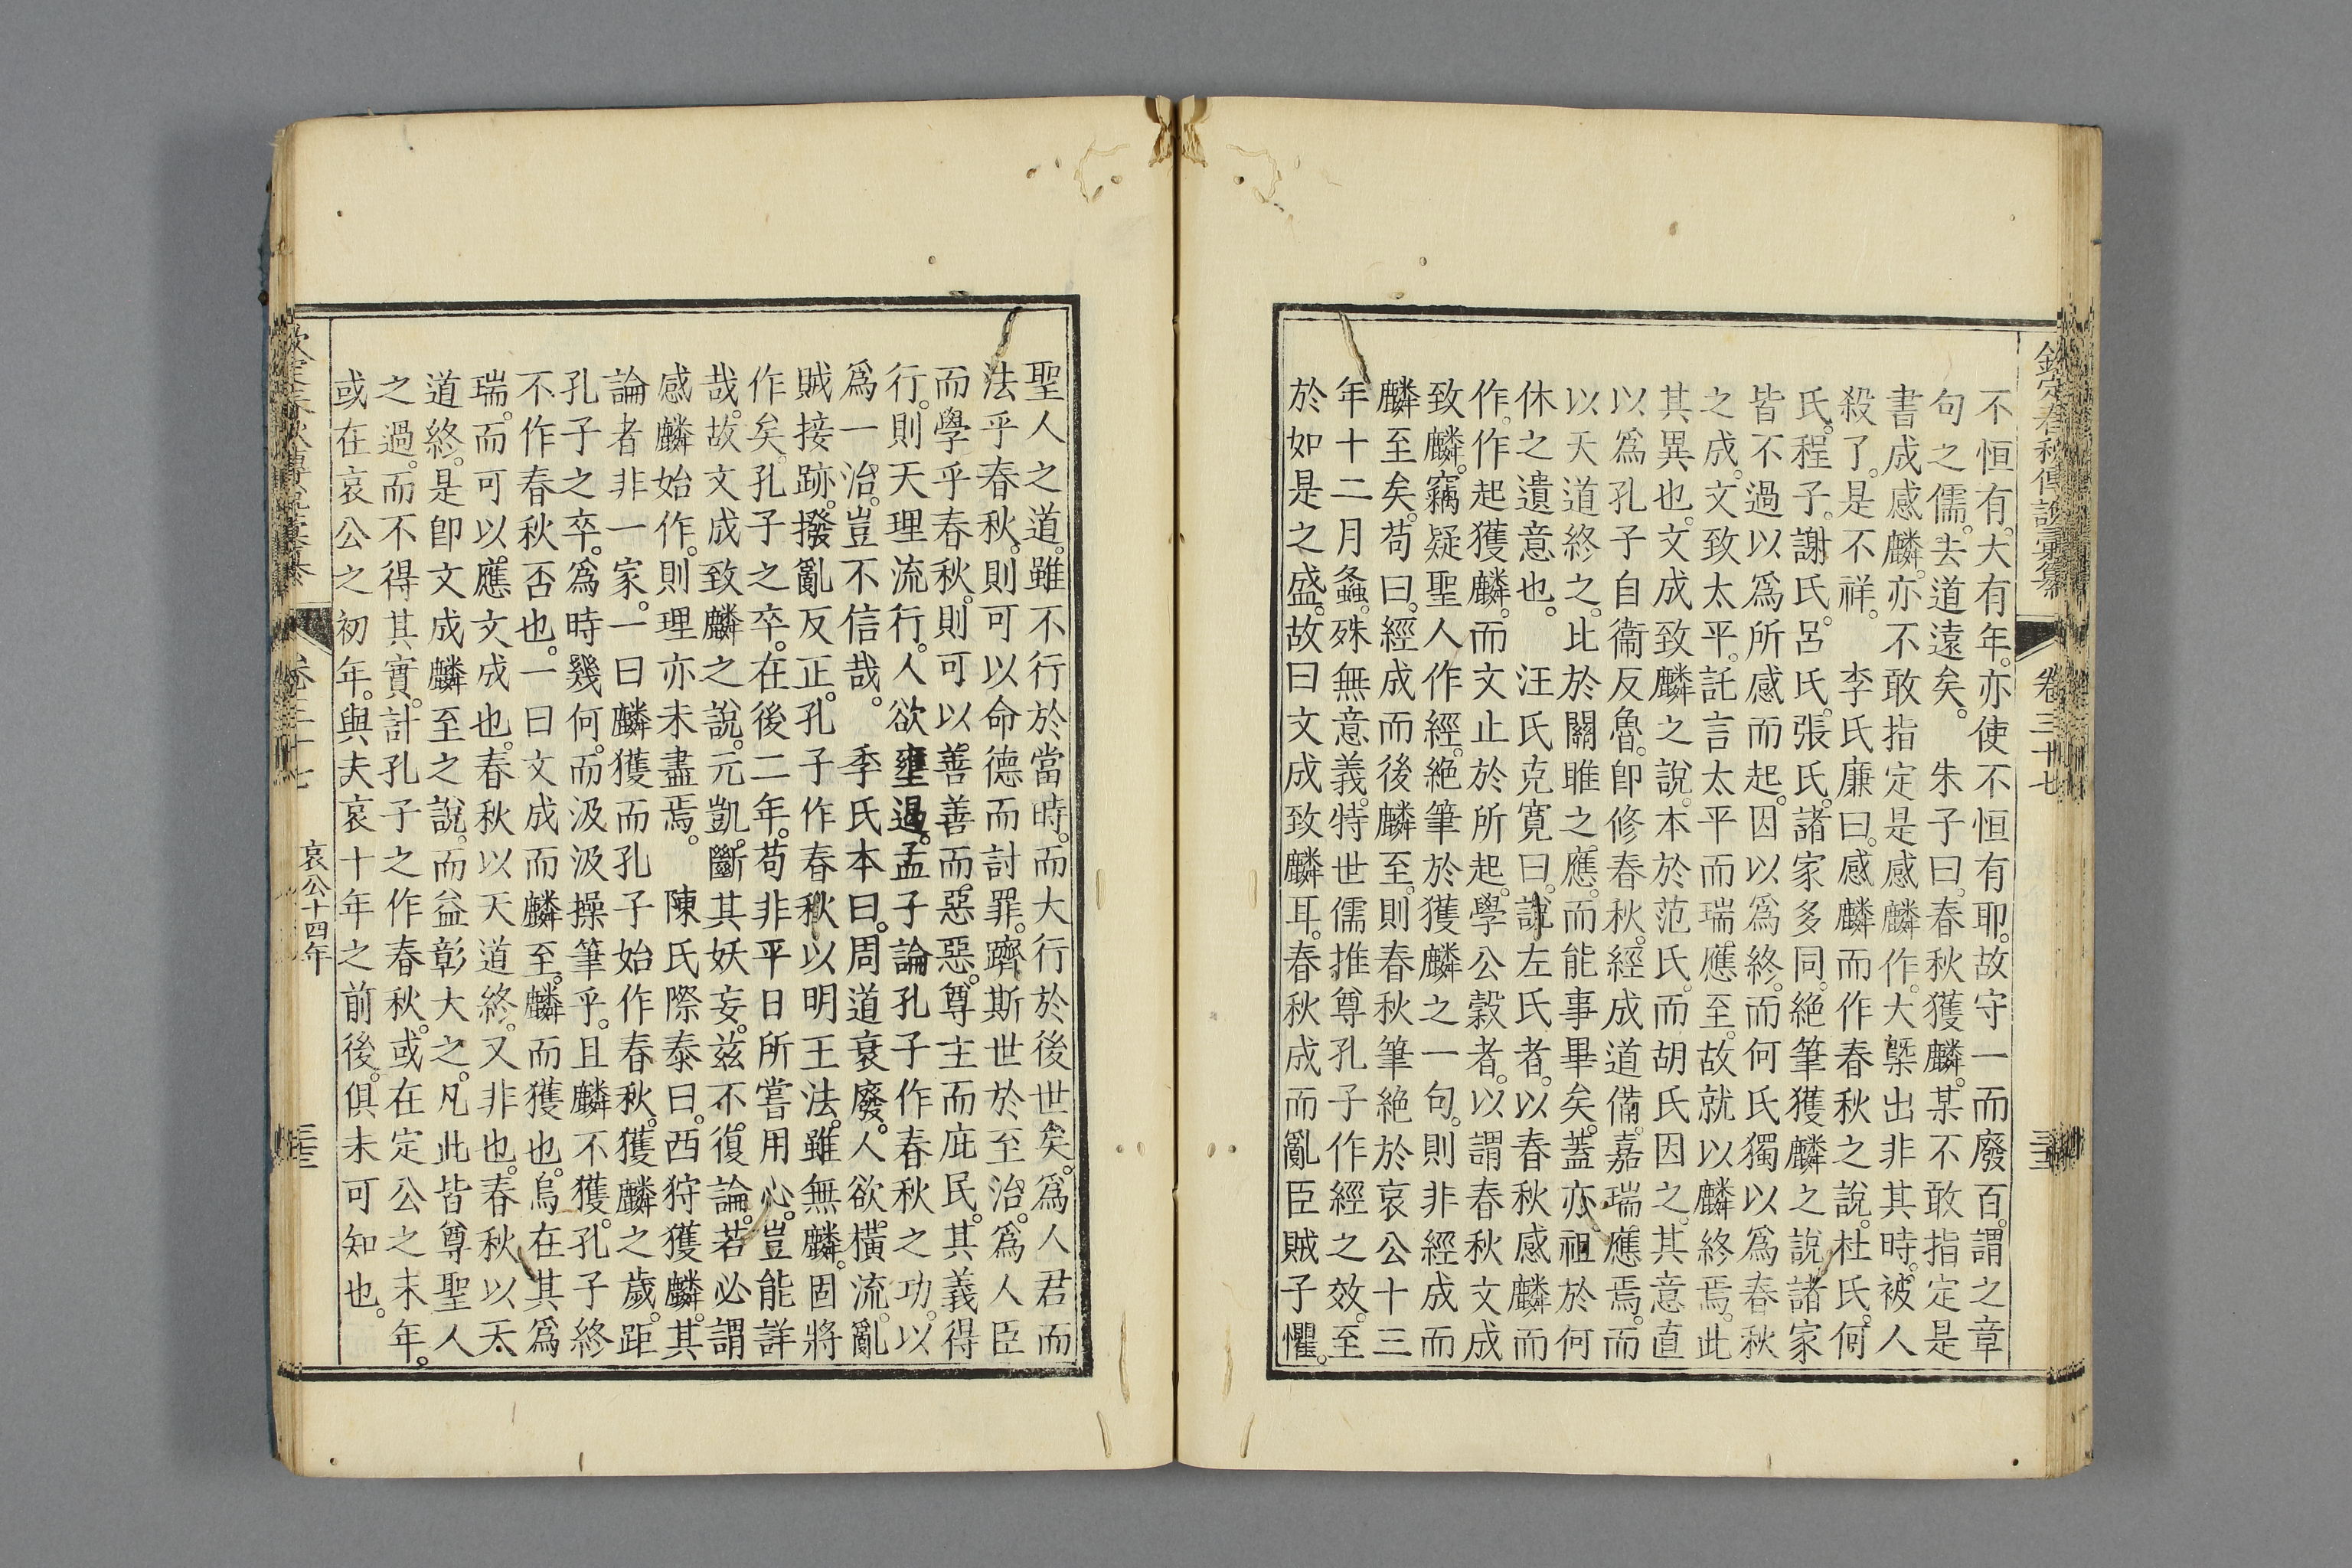 欽定春秋傳說彙纂 卷三十七
不恒有。大有年。亦使不恒有耶。故守一而廢百。謂之章
句之儒。去道遠矣。 朱子曰。春秋獲麟。某不敢指定是
書成感麟。亦不敢指定是感麟作。大槩出非其時。被人
殺了。是不祥。 李氏廉曰。感麟而作春秋之說。杜氏。何
氏。程子。謝氏。呂氏。張氏。諸家多同。絕筆獲麟之說。諸家
皆不過以爲所感而起。因以爲終。而何氏獨以爲春秋
之成。文致太平。託言太平而瑞應至。故就以麟終焉。此
其異也。文成致麟之說。本於范氏。而胡氏因之。其意直
以爲孔子自衞反魯。卽修春秋。經成道備。嘉瑞應焉。而
以天道終之。比於關雎之應。而能事畢矣。蓋亦祖於何
休之遺意也。 汪氏克寬曰。說左氏者。以春秋感麟而
作。作起獲麟。而文止於所起。學公穀者。以謂春秋文成
致麟。竊疑聖人作經。絕筆於獲麟之一句。則非經成而
麟至矣。苟曰。經成而後麟至。則春秋筆絕於哀公十三
年十二月螽。殊無意義。特世儒推尊孔子作經之效。至
於如是之盛。故曰文成致麟耳。春秋成而亂臣賊子懼。
聖人之道。雖不行於當時。而大行於後世矣。爲人君而
法乎春秋。則可以命德而討罪。躋斯世於至治。爲人臣
而學乎春秋。則可以善善而惡惡。尊主而庇民。其義得
行。則天理流行。人欲壅遏。孟子論孔子作春秋之功。以
爲一治。豈不信哉。 季氏本曰。周道衰廢。人欲橫流。亂
賊接跡。撥亂反正。孔子作春秋以明王法。雖無麟。固將
作矣。孔子之卒。在後二年。苟非平日所嘗用心。豈能詳
哉。故文成致麟之說。元凱斷其妖妄。茲不復論。若必謂
感麟始作。則理亦未盡焉。 陳氏際泰曰。西狩獲麟。其
論者非一家。一曰麟獲而孔子始作春秋。獲麟之歲。距
孔子之卒。爲時幾何。而汲汲操筆乎。且麟不獲。孔子終
不作春秋否也。一曰文成而麟至。麟而獲也。烏在其爲
瑞。而可以應文成也。春秋以天道終。又非也。春秋以天
道終。是卽文成麟至之說。而益彰大之。凡此皆尊聖人
之過。而不得其實。計孔子之作春秋。或在定公之末年。
或在哀公之初年。與夫哀十年之前後。俱未可知也。
哀公十四年